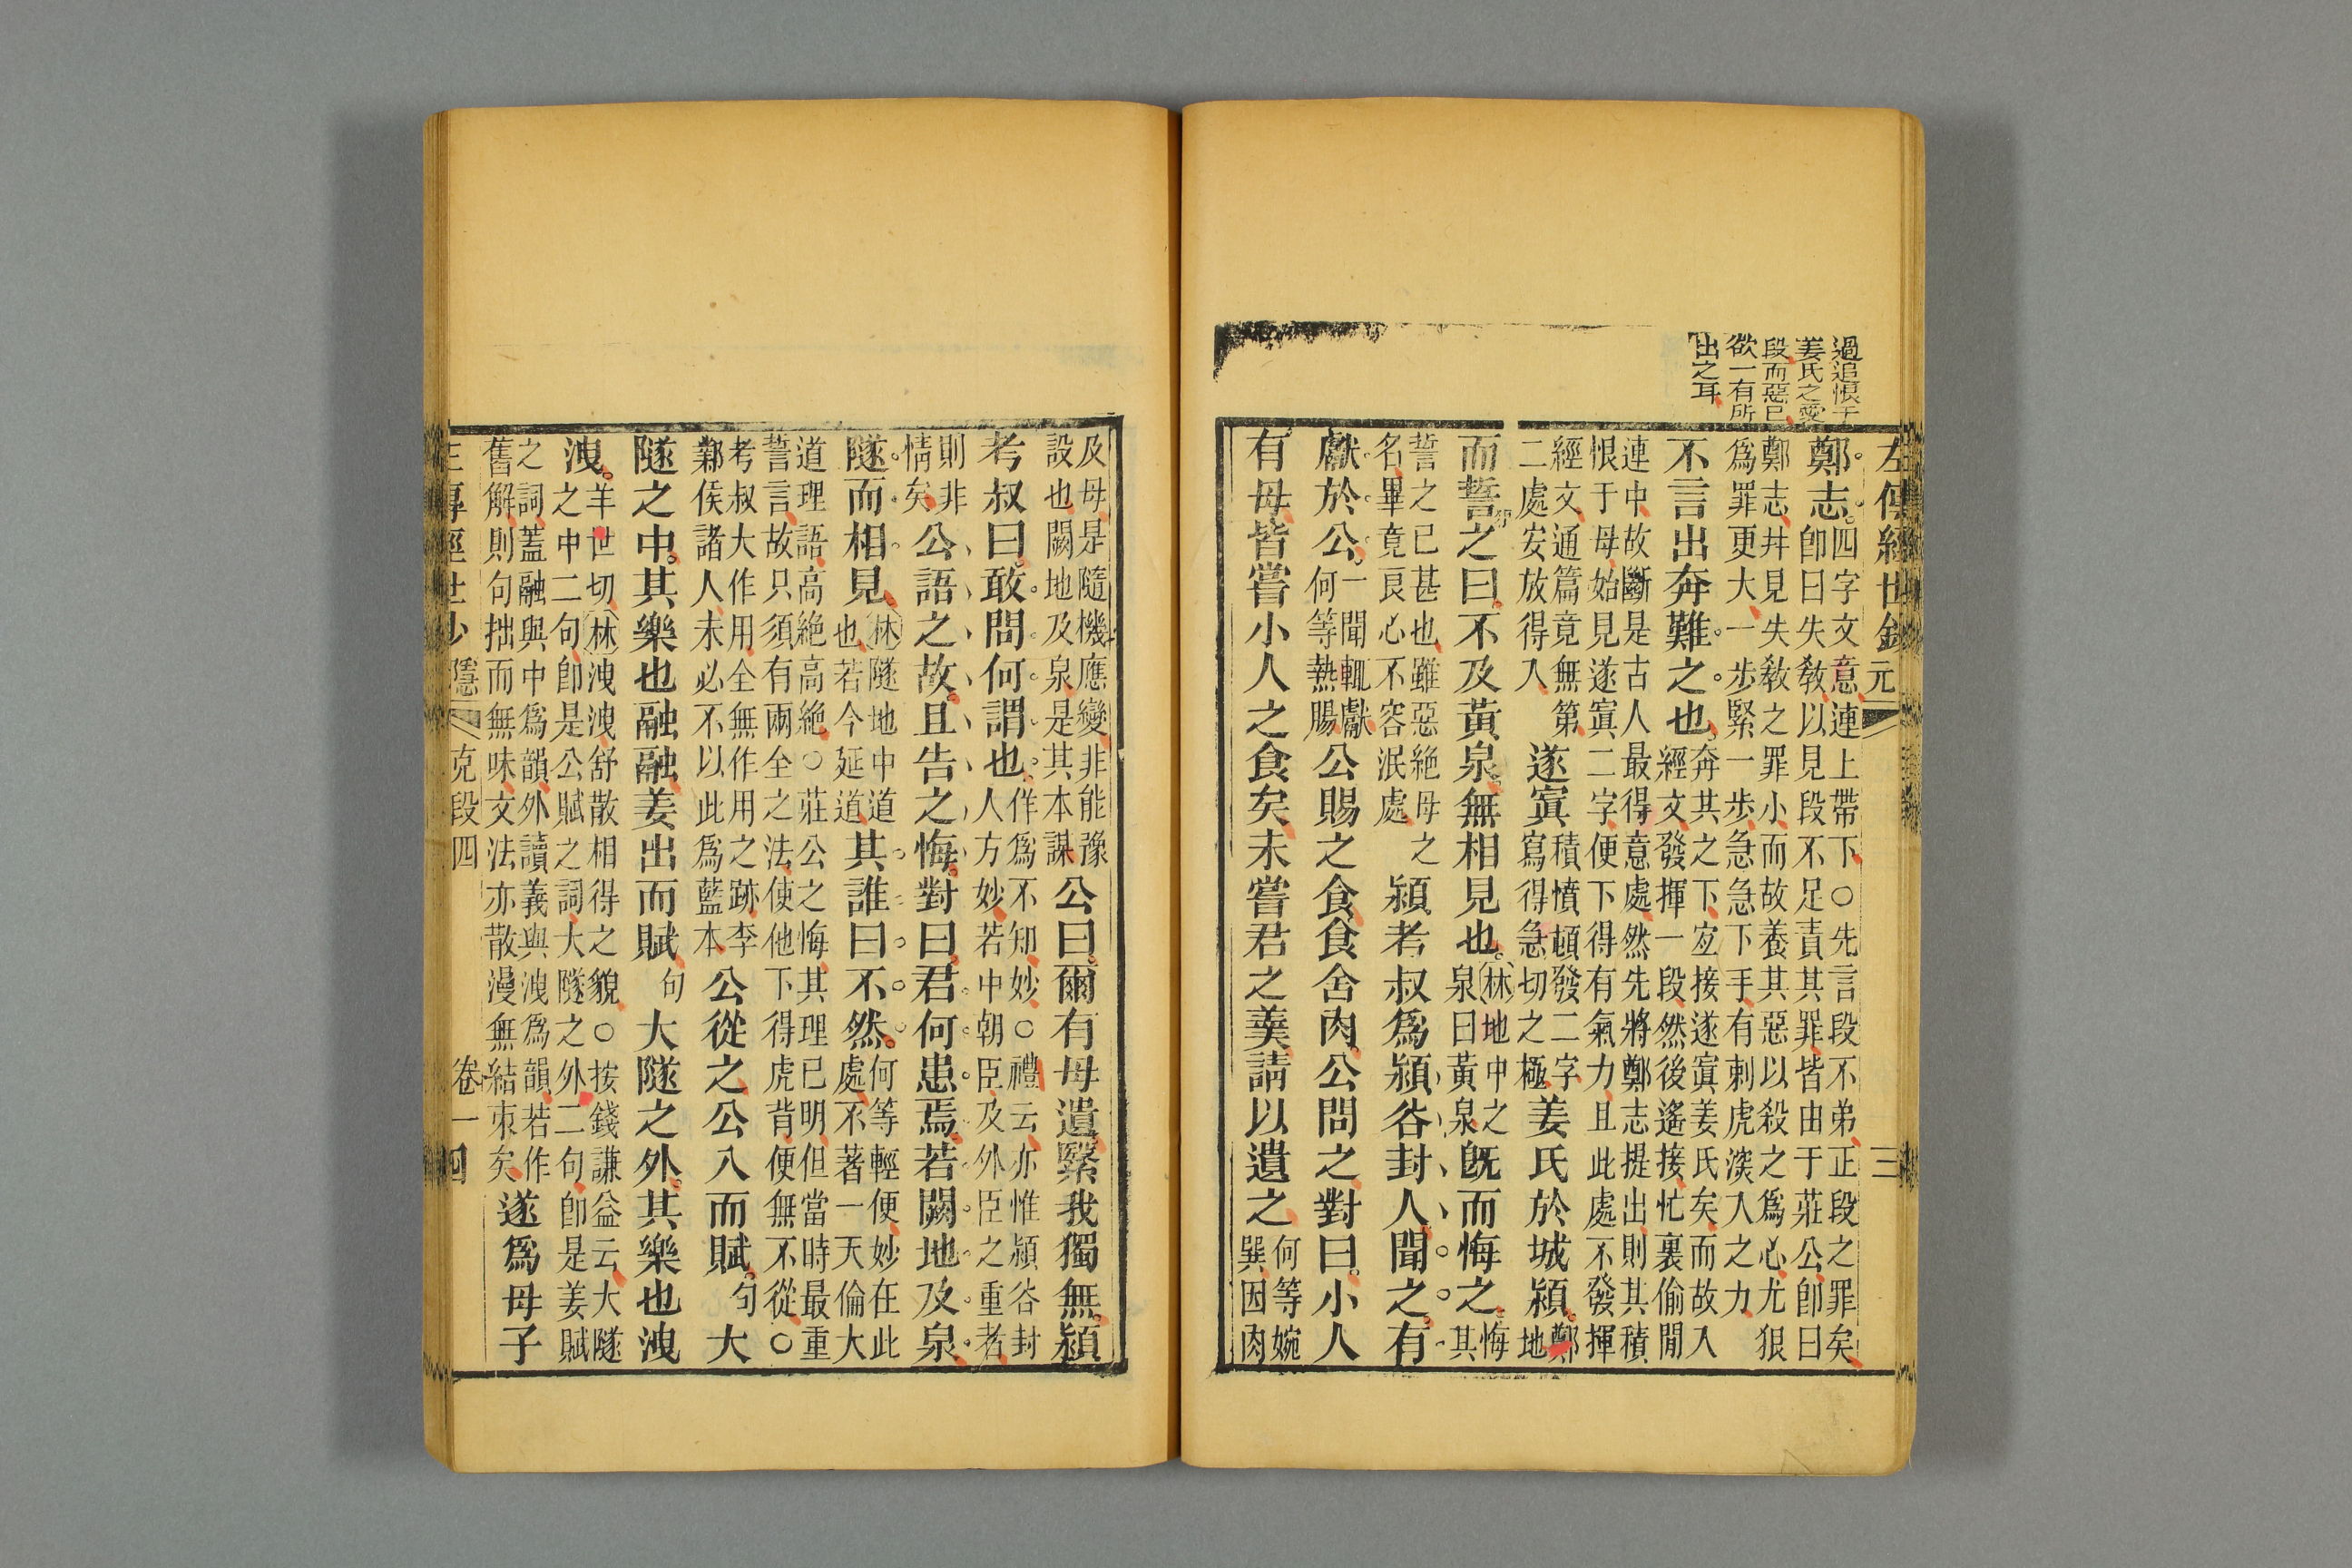 過追恨于
姜氏之愛
段而惡已
欲一有所
出之耳
左傳經世鈔 元 三
鄭志四字文意連上帶下○先言段不弟正段之罪矣
卽曰失敎以見段不足責其罪皆由于莊公卽曰
鄭志井見失敎之罪小而故養其惡以殺之爲心尤狠
爲罪更大一步緊一步急急下手有刺虎深入之力
不言出奔難之也奔其之下宜接遂寘姜氏矣而故入
經文發揮一段然後遙接忙裏偷閒
連中故斷是古人最得意處然先將鄭志提出則其積
恨于母始見遂寘二字便下得有氣力且此處不發揮
經文通篇竟無第
二處安放得入遂寘積憤頓發二字
寫得急切之極姜氏於城潁鄭
地
而誓之曰不及黃泉無相見也林地中之
泉曰黃泉旣而悔之悔
其
誓之已甚也雖惡絶母之
名畢竟良心不容泯處潁考叔爲潁谷封人聞之有
獻於公一聞輒獻
何等熱腸公賜之食食舍肉公問之對曰小人
有母皆嘗小人之食矣未嘗君之羹請以遺之何等婉
巽因肉
及母是隨機應變非能豫
設也闕地及泉是其本謀公曰爾有母遺繄我獨無潁
考叔曰敢問何謂也作爲不知妙○禮云亦惟潁谷封
人方妙若中朝臣及外臣之重者
則非
情矣公語之故且告之悔對曰君何患焉若闕地及泉
隧而相見林隧地中道
也若今延道其誰曰不然何等輕便妙在此
處不著一天倫大
道理語高絶高絶○莊公之悔其理已明但當時最重
誓言故只須有兩全之法使他下得虎背便無不從○
考叔大作用全無作用之跡李
鄴侯諸人未必不以此爲藍本公從之公入而賦句大
隧之中其樂也融融姜出而賦句大隧之外其樂也洩
洩羊世切林洩洩舒散相得之貌○按錢謙益云大隧
之中二句卽是公賦之詞大隧之外二句卽是姜賦
之詞蓋融與中爲韻外讀義與洩爲韻若作
舊解則句拙而無味文法亦散漫無結束矣遂爲母子
左傳經世鈔 隱 克段四 卷一 四